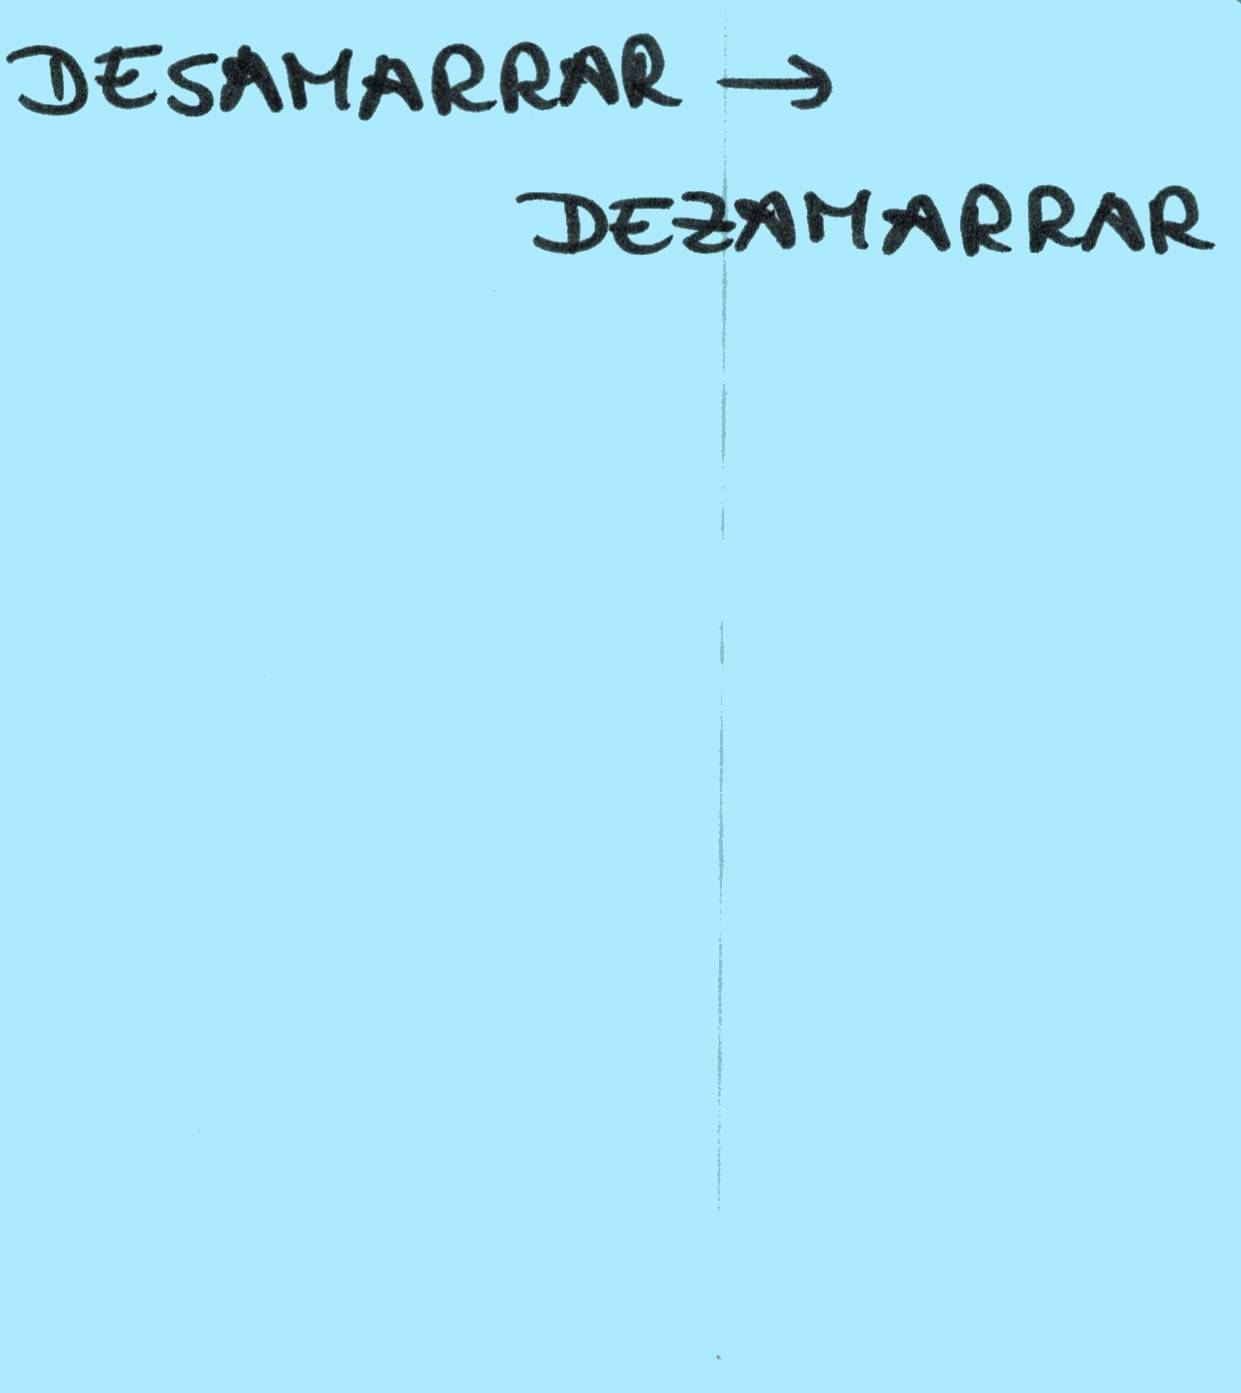 DESAMARRAR →
DEZAMARRAR